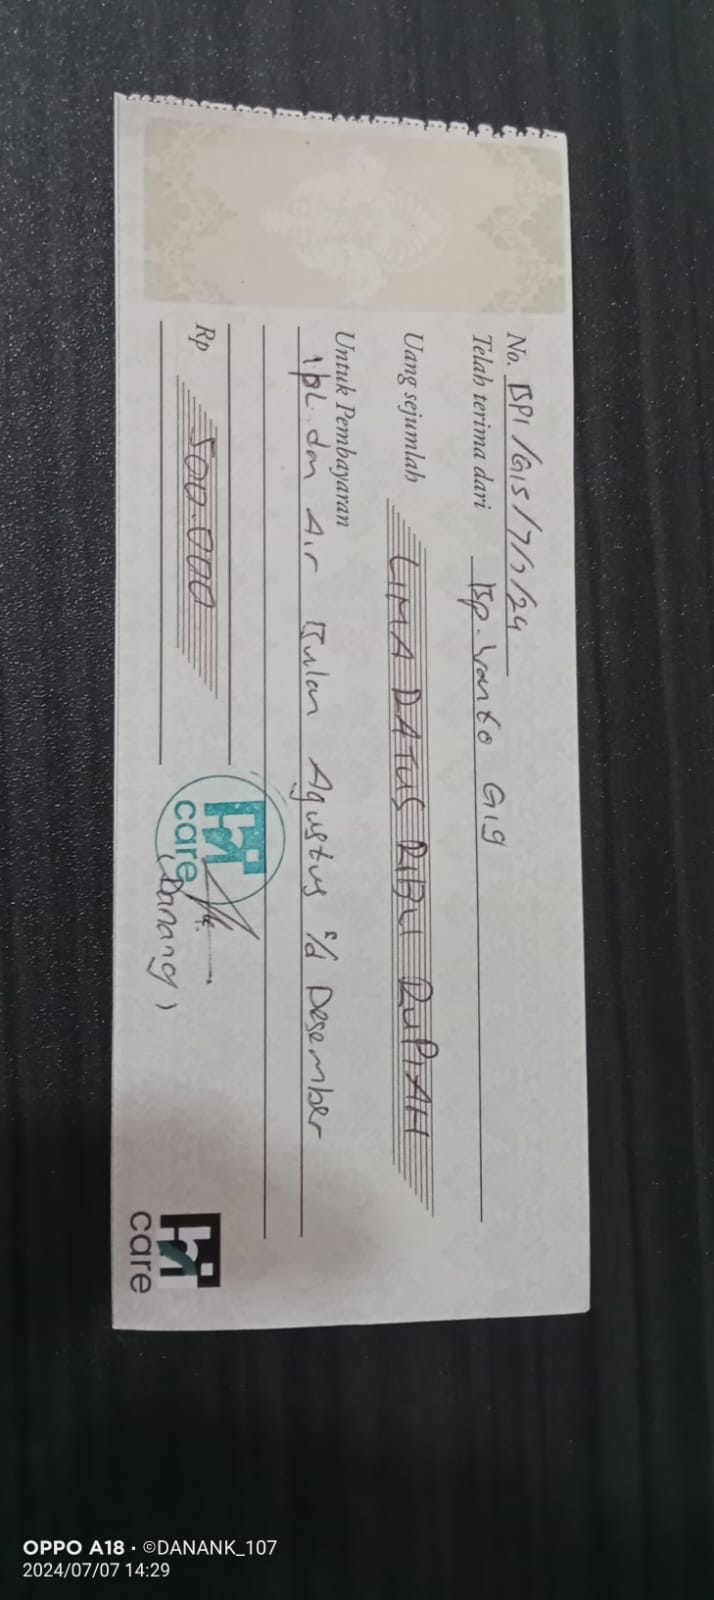 No. BPI/G15/7/7/24
Telah terima dari Bp. Wanto G19
Uang sejumlah LIMA RATUS RIBU RUPIAH
Untuk Pembayaran
IPL dan Air Bulan Agustus s/d Desember
Rp 500.000
care
(Danang)
care
OPPO A18 · ©DANANK_107
2024/07/07 14:29